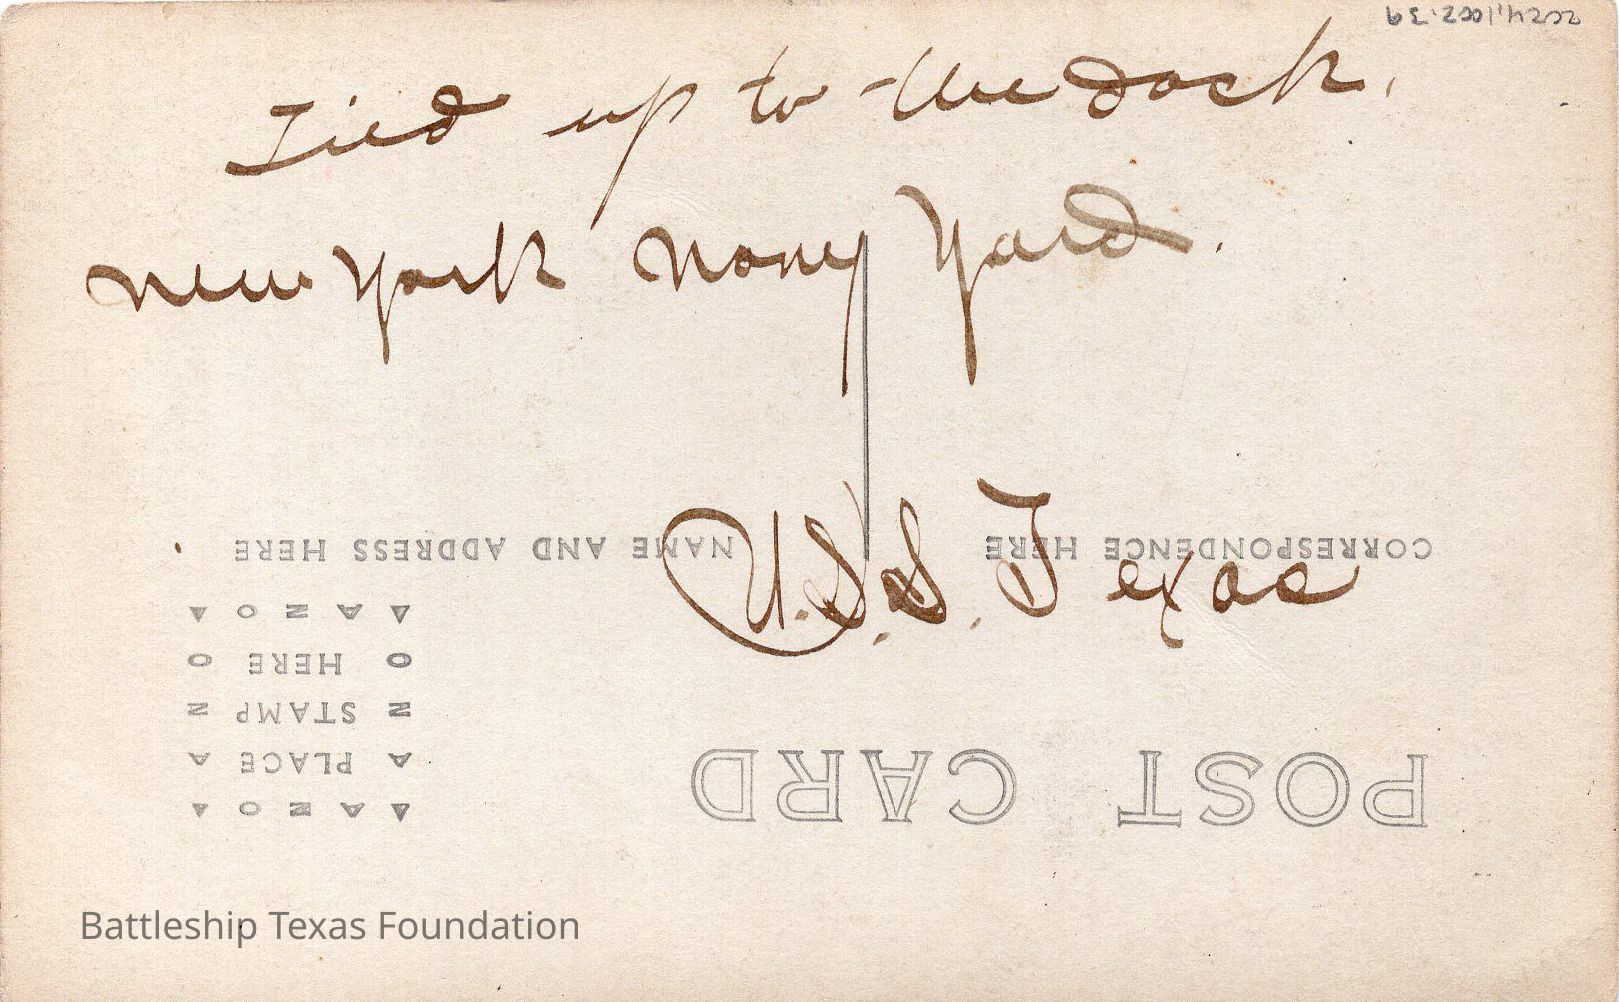 Tied up to the dock.
New York Navy Yard.
U.S.S. Texas
POST CARD
CORRESPONDENCE HERE
NAME AND ADDRESS HERE
AZO
PLACE
STAMP
HERE
AZO
Battleship Texas Foundation